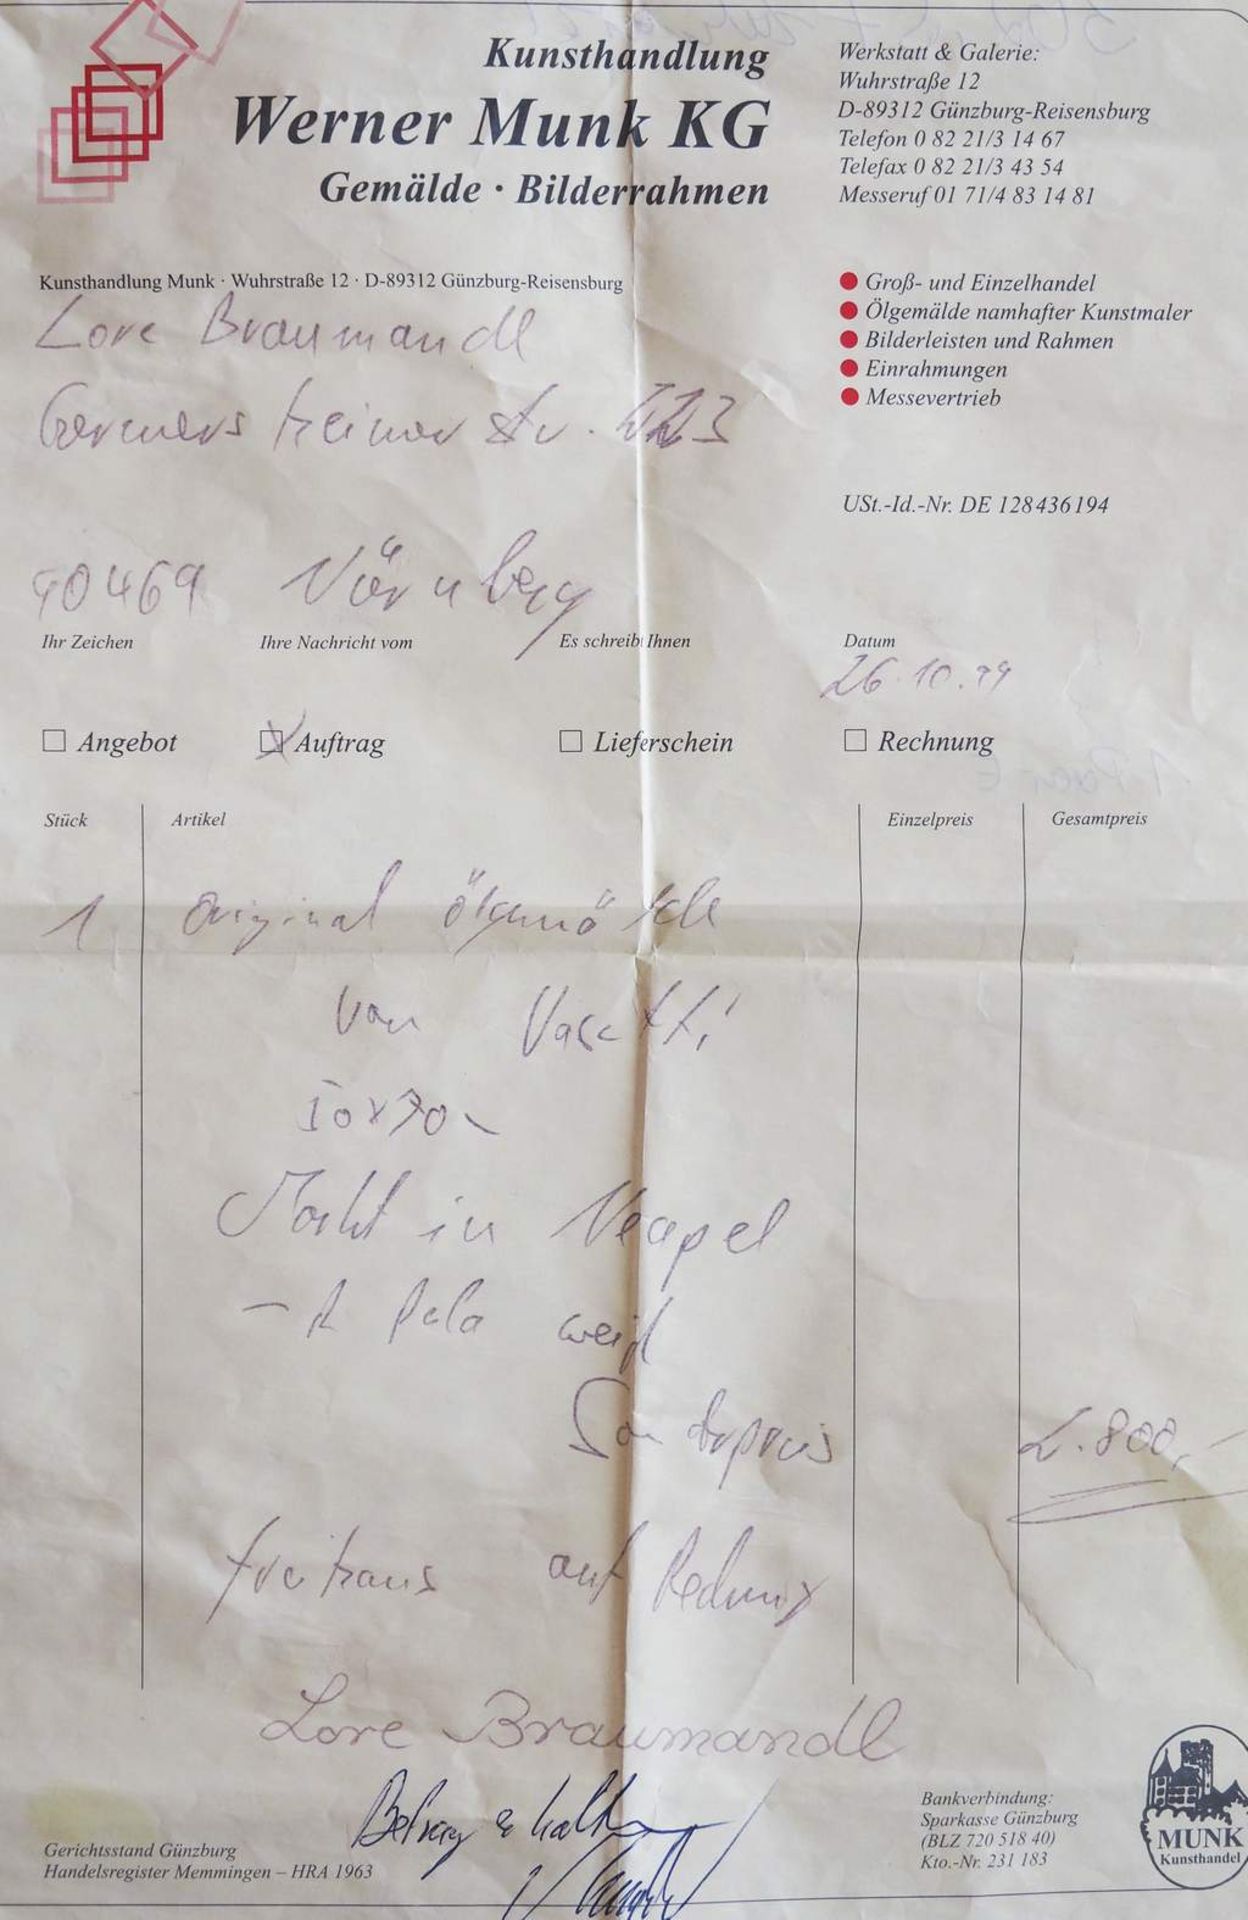 Kunsthandlung
Werner Munk KG
Gemälde · Bilderrahmen
Werkstatt & Galerie:
Wuhrstraße 12
D-89312 Günzburg-Reisensburg
Telefon 0 82 21/3 14 67
Telefax 0 82 21/3 43 54
Messeruf 01 71/4 83 14 81
Kunsthandlung Munk · Wuhrstraße 12 · D-89312 Günzburg-Reisensburg
Groß- und Einzelhandel
Ölgemälde namhafter Kunstmaler
Bilderleisten und Rahmen
Einrahmungen
Messevertrieb
Lore Braumandl
Str.
USt.-Id.-Nr. DE 128436194
90469 Nürnberg
Ihr Zeichen Ihre Nachricht vom Es schreibt Ihnen Datum
26.10.99
Angebot Auftrag Lieferschein Rechnung
Stück Artikel Einzelpreis Gesamtpreis
1 Original Ölgemälde
von Vasetti
50x70
Markt in Neapel
weiß
Sonderpreis 2.800,-
frei haus auf Rechnung
Lore Braumandl
Betrag erhalten
Gerichtsstand Günzburg
Handelsregister Memmingen – HRA 1963
Bankverbindung:
Sparkasse Günzburg
(BLZ 720 518 40)
Kto.-Nr. 231 183
MUNK
Kunsthandel